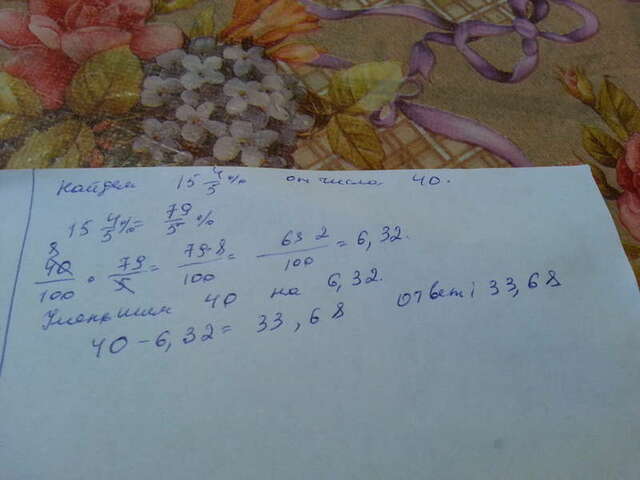 Найдем 15 4/5 % от числа 40.
15 4/5 % = 79/5 %
40/100 · 79/5 = 79·8/100 = 632/100 = 6,32.
8
Уменьшим 40 на 6,32.
40 – 6,32 = 33,68 Ответ: 33,68